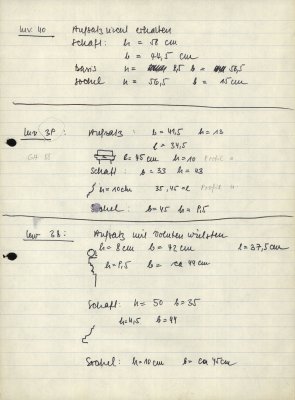 Inv. 40 Aufsatz nicht erhalten
Schaft: h = 58 cm
b = 44,5 cm
basis h = 8,5 b = 56,5
Sockel h = 56,5 b = 15 cm
Inv. 3P: Aufsatz: b = 41,5 h = 13
l = 34,5
b = 45 cm h = 10 Profil
Schaft: b = 33 h = 43
h = 10 cm 35,45 Profil
Sockel: b = 45 h = P,5
Inv 38: Aufsatz mit Voluten wülsten
h = 8 cm b = 42 cm l = 37,5 cm
h = P,5 b = ca 49 cm
Schaft: h = 50 b = 35
h = 4,5 b = 44
Sockel: h = 10 cm b = ca 45 cm